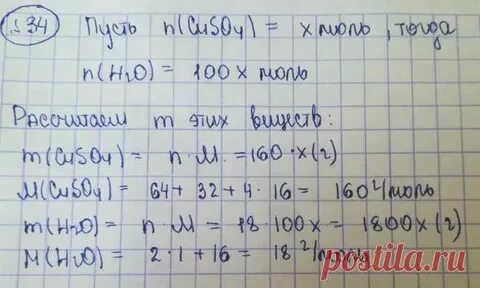 №34 Пусть n(CuSO4) = x моль, тогда
n(H2O) = 100x моль
Рассчитаем m этих веществ:
m(CuSO4) = n·M = 160·x(г)
M(CuSO4) = 64+32+4·16 = 160 г/моль
m(H2O) = n·M = 18·100x = 1800x (г)
M(H2O) = 2·1+16 = 18 г/моль
postila.ru